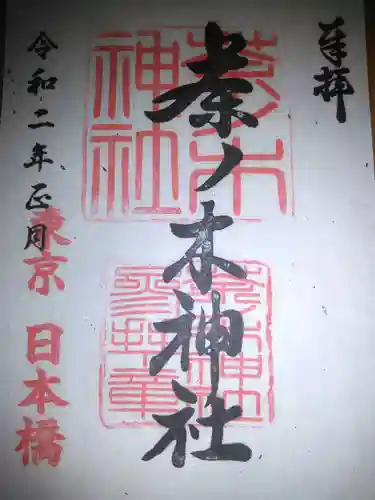 奉拝
茶ノ木神社
茶ノ木
神社
令和二年正月
東京 日本橋